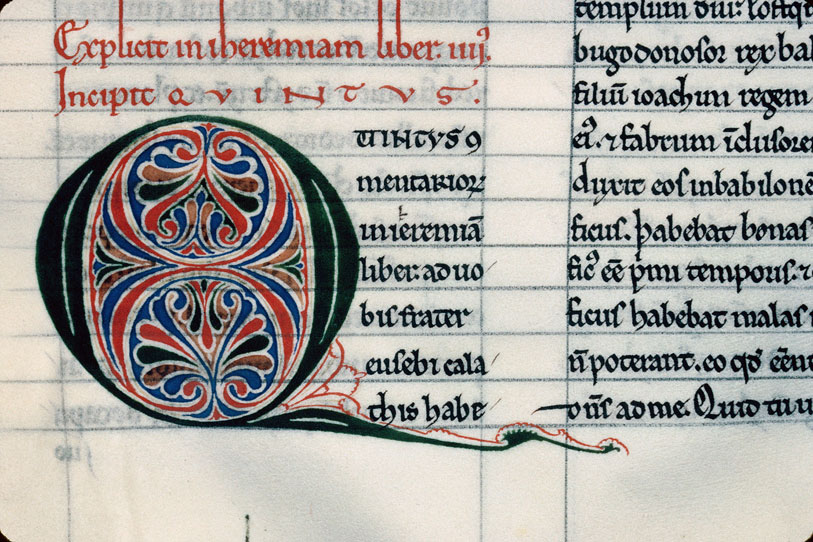 Explicit in iheremiam liber. iiij.
Incipit QVINTVS.
QUINTVS 9
mentarioꝝ
in ieremiā
liber: ad uo
bis frater
eusebi cala
this habe
templum dni: postq̄
bugodonosor rex bal
filiū ioachim regem
ei'. ⁊ fabrum ⁊ īclusorem
duxit eos in babilonē
ficus. habebat bonas
fic' eē p̄mi temporis. ⁊
ficus habebat malas
n̄ poterant. eo qd' eēnt
dn̄s ad me. Quid tu ui